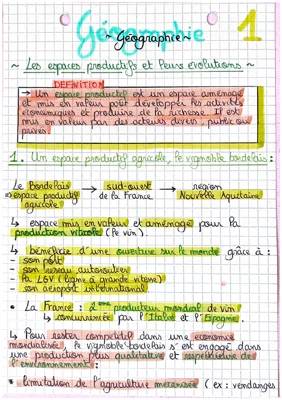 Géographie 1
~ Géographie ~
~ Les espaces productifs et leurs évolutions ~
DEFINITION
→ Un espace productif est un espace aménagé
et mis en valeur pour développer les activités
économiques et produire de la richesse. Il est
mis en valeur par des acteurs divers, public ou
privés
1. Un espace productif agricole, le vignoble bordelais :
Le Bordelais → sud-ouest → région
espace productif de la France Nouvelle Aquitaine
agricole
↳ espace mis en valeur et aménagé pour la
production viticole (le vin).
↳ bénéficie d'une ouverture sur le monde grâce à :
- son port
- son réseau autoroutier
- la LGV (ligne à grande vitesse)
- son aéroport international
• La France : 2ème producteur mondial de vin
↳ concurrencée par l'Italie et l'Espagne.
↳ Pour rester compétitif dans une économie
mondialisée, le vignoble bordelais s'est engagé dans
une production plus qualitative et respectueuse de
l'environnement :
• limitation de l'agriculture mécanisée (ex : vendanges